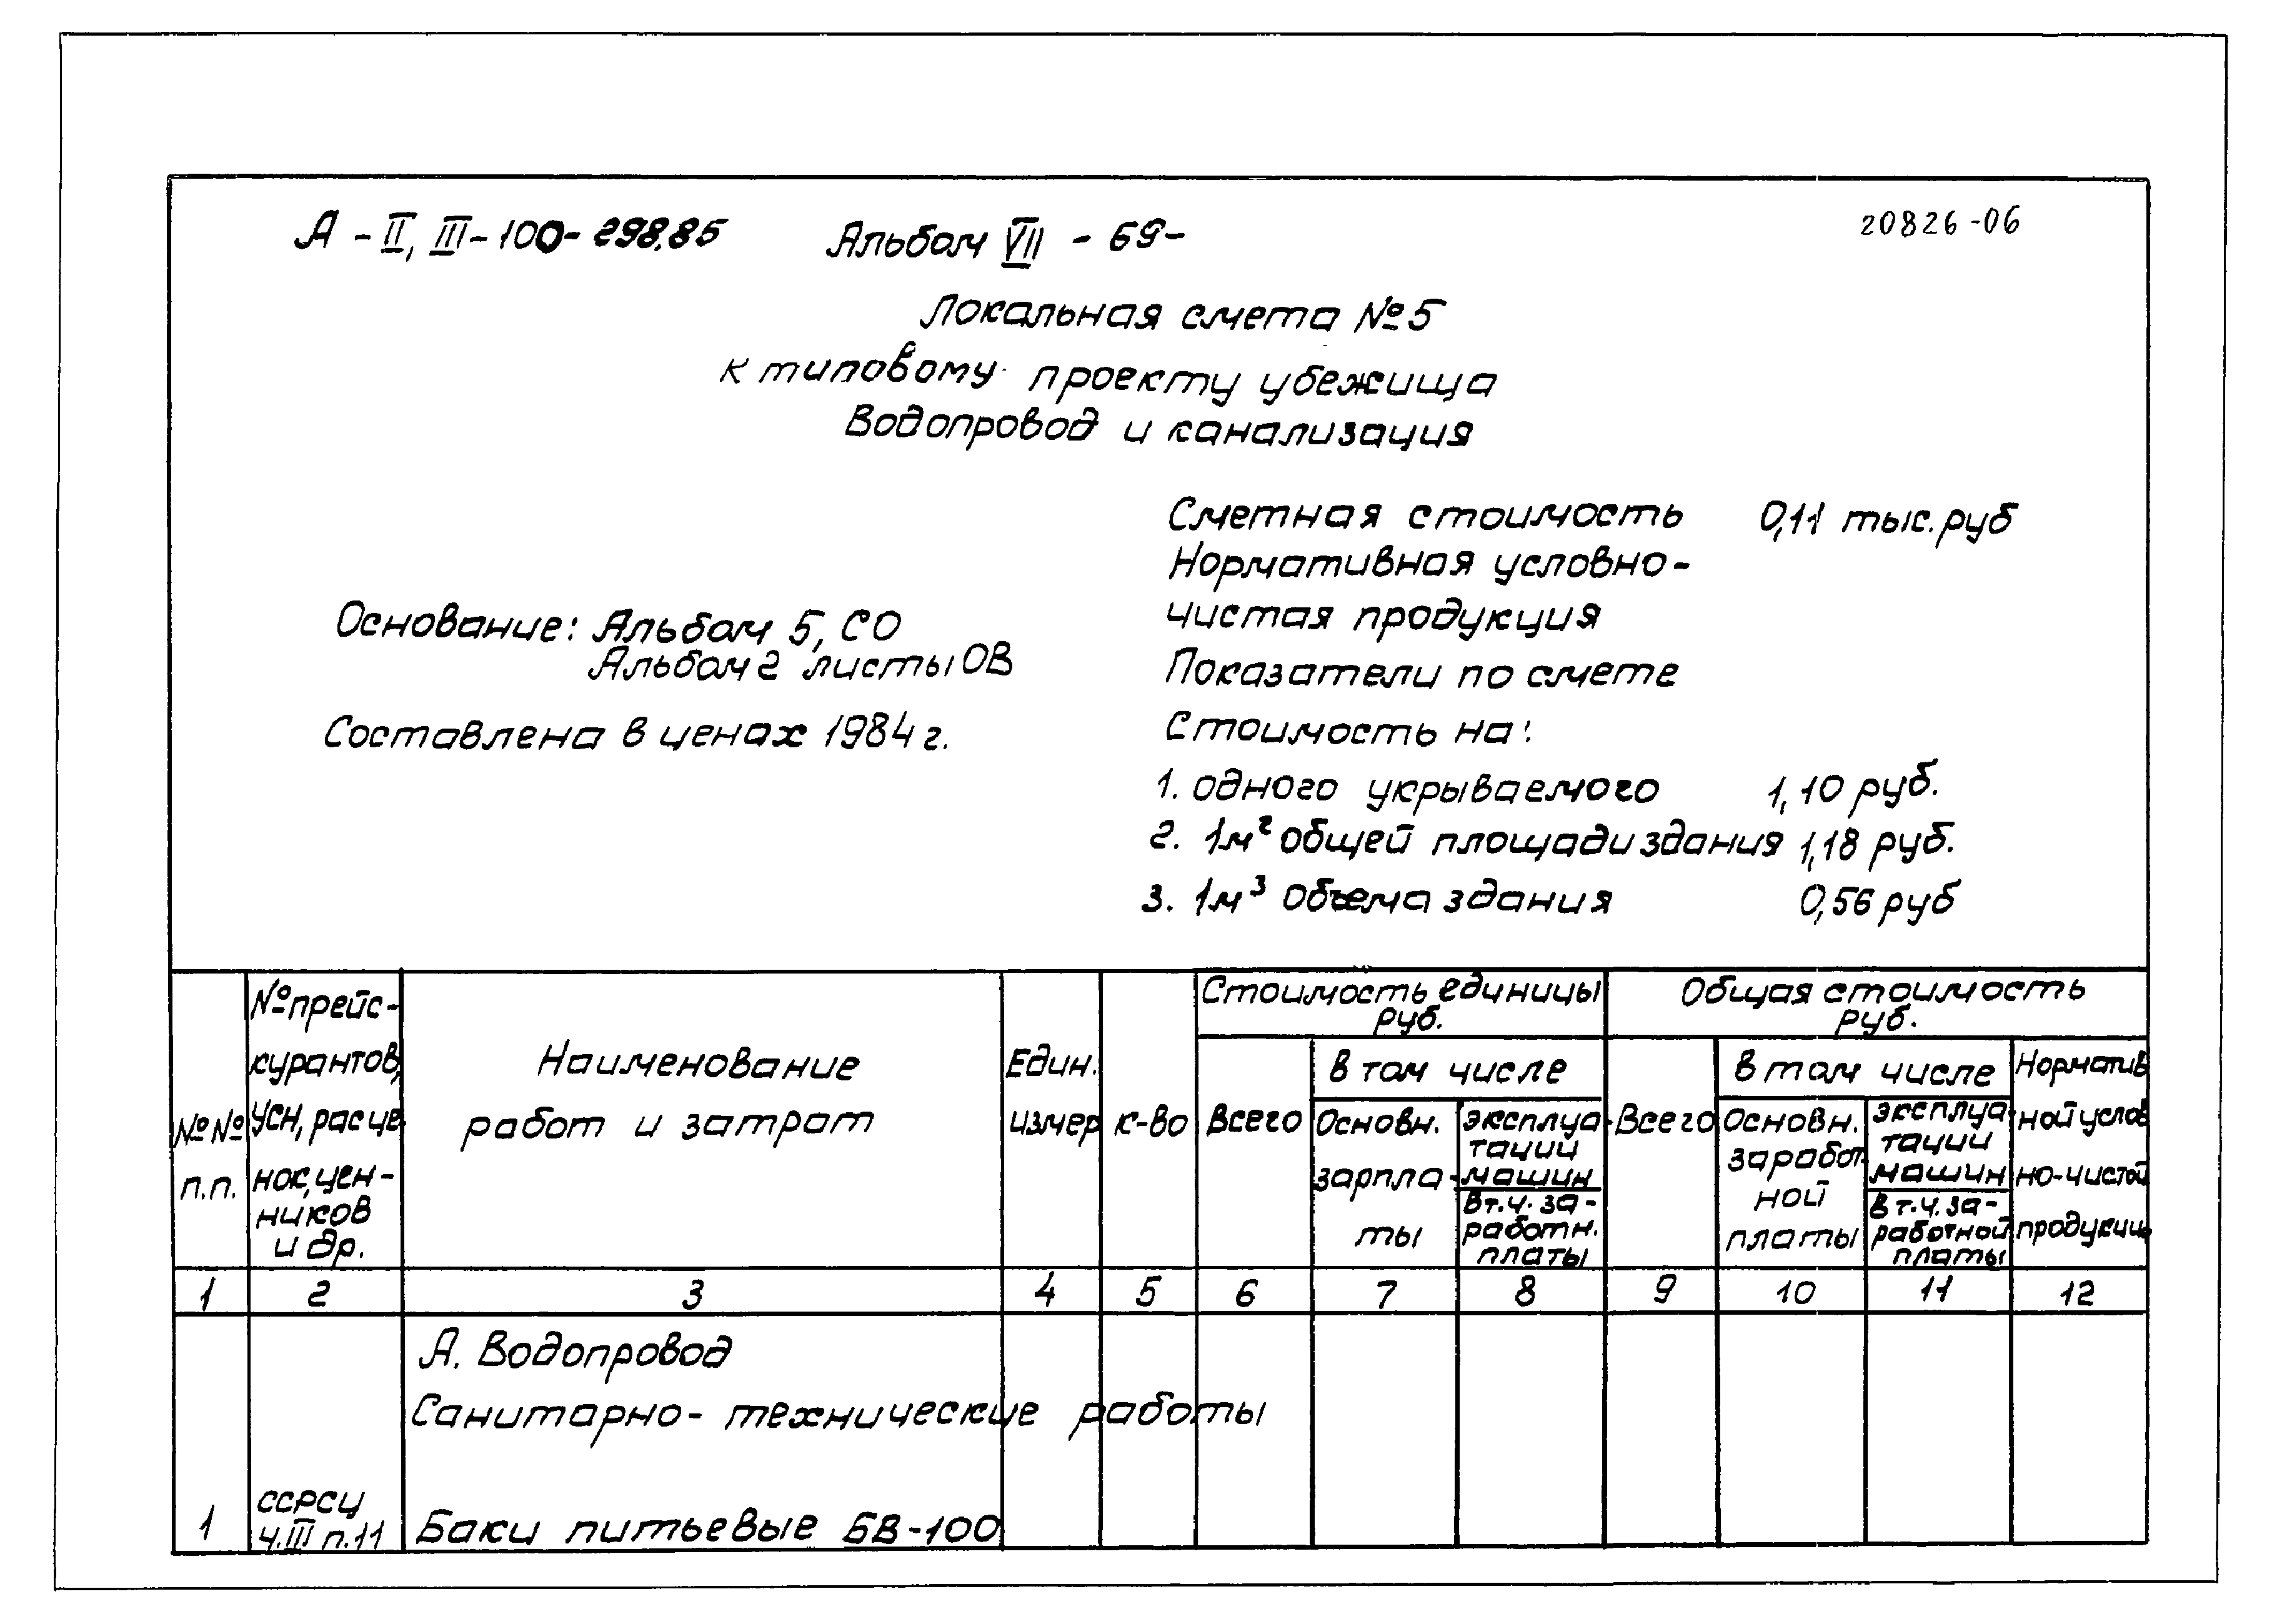 А - II, III - 100 - 298.85 Альбом VII - 69 - 20826-06
Локальная смета №5
к типовому проекту убежища
Водопровод и канализация
Сметная стоимость 0,11 тыс.руб
Нормативная условно-
чистая продукция
Основание: Альбом 5, СО
Альбом 2 листы ОВ
Показатели по смете
Составлена в ценах 1984 г.
Стоимость на:
1. одного укрываемого 1,10 руб.
2. 1м² общей площади здания 1,18 руб.
3. 1м³ объема здания 0,56 руб
№№
п.п.
№ прейс-
курантов,
УСН, расце
нок, цен-
ников
и др.
Наименование
работ и затрат
Един.
измер
к-во
Стоимость единицы
руб.
Всего
в том числе
Основн.
зарпла-
ты
эксплуа
тации
машин
в т.ч. за-
работн.
платы
Общая стоимость
руб.
Всего
в том числе
Основн.
заработ-
ной
платы
эксплуа
тации
машин
в т.ч. за-
работной
платы
Норматив
ной услов
но-чистой
продукции
1 2 3 4 5 6 7 8 9 10 11 12
А. Водопровод
Санитарно-технические работы
1 ССРСЦ
ч.III п.11 Баки питьевые БВ-100